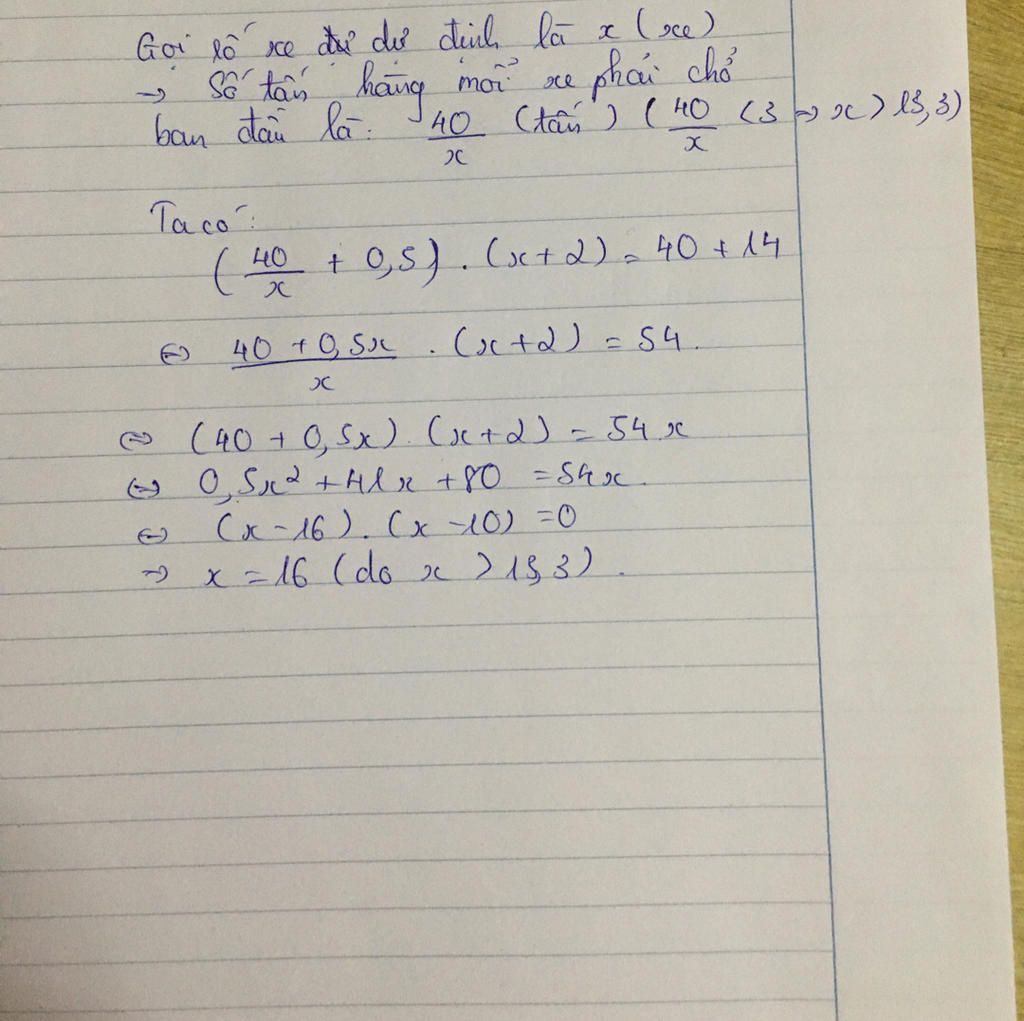 Gọi số xe dự định là x (xe)
→ Số tấn hàng mỗi xe phải chở
ban đầu là: 40/x (tấn) (40/x < 3 => x > 13,3)
Ta có:
(40/x + 0,5) . (x+2) = 40 + 14
<=> (40 + 0,5x)/x . (x+2) = 54.
<=> (40 + 0,5x) . (x+2) = 54.x
<=> 0,5x² + 41x + 80 = 54x.
<=> (x-16) . (x-10) = 0
=> x = 16 (do x > 13,3).